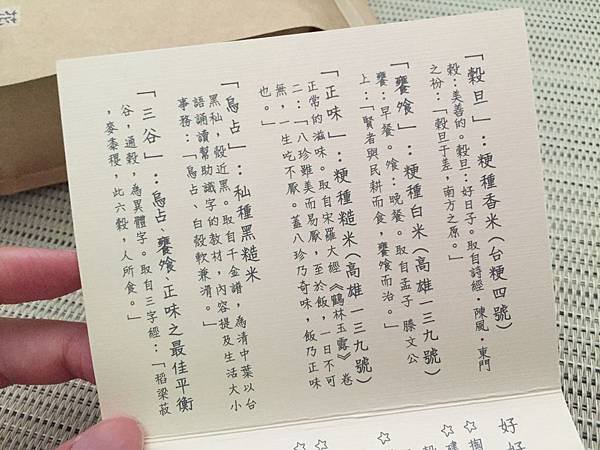 「穀旦」：粳種香米(台粳四號)
穀：美善的。穀旦：好日子。取自詩經·陳風·東門
之枌：「穀旦于差，南方之原。」
「饔飧」：粳種白米(高雄一三九號)
饔：早餐。飧：晚餐。取自孟子 滕文公
上：「賢者與民耕而食，饔飧而治。」
「正味」：粳種糙米(高雄一三九號)
正常的滋味。取自宋羅大經《鶴林玉露》卷
二：「八珍雖美而易厭，至於飯，一日不可
無，一生吃不厭。蓋八珍乃奇味，飯乃正味
也。」
「烏占」：秈種黑糙米
黑秈，殼近黑。取自千金譜，為清中葉以台
語誦讀幫助識字的教材，內容提及生活大小
事務：「烏占、白殼軟兼滑。」
「三谷」：烏占、饔飧、正味之最佳平衡
谷，通穀，為異體字。取自三字經：「稻粱菽
，麥黍稷，此六穀，人所食。」
好好
☆
☆
☆
☆
花